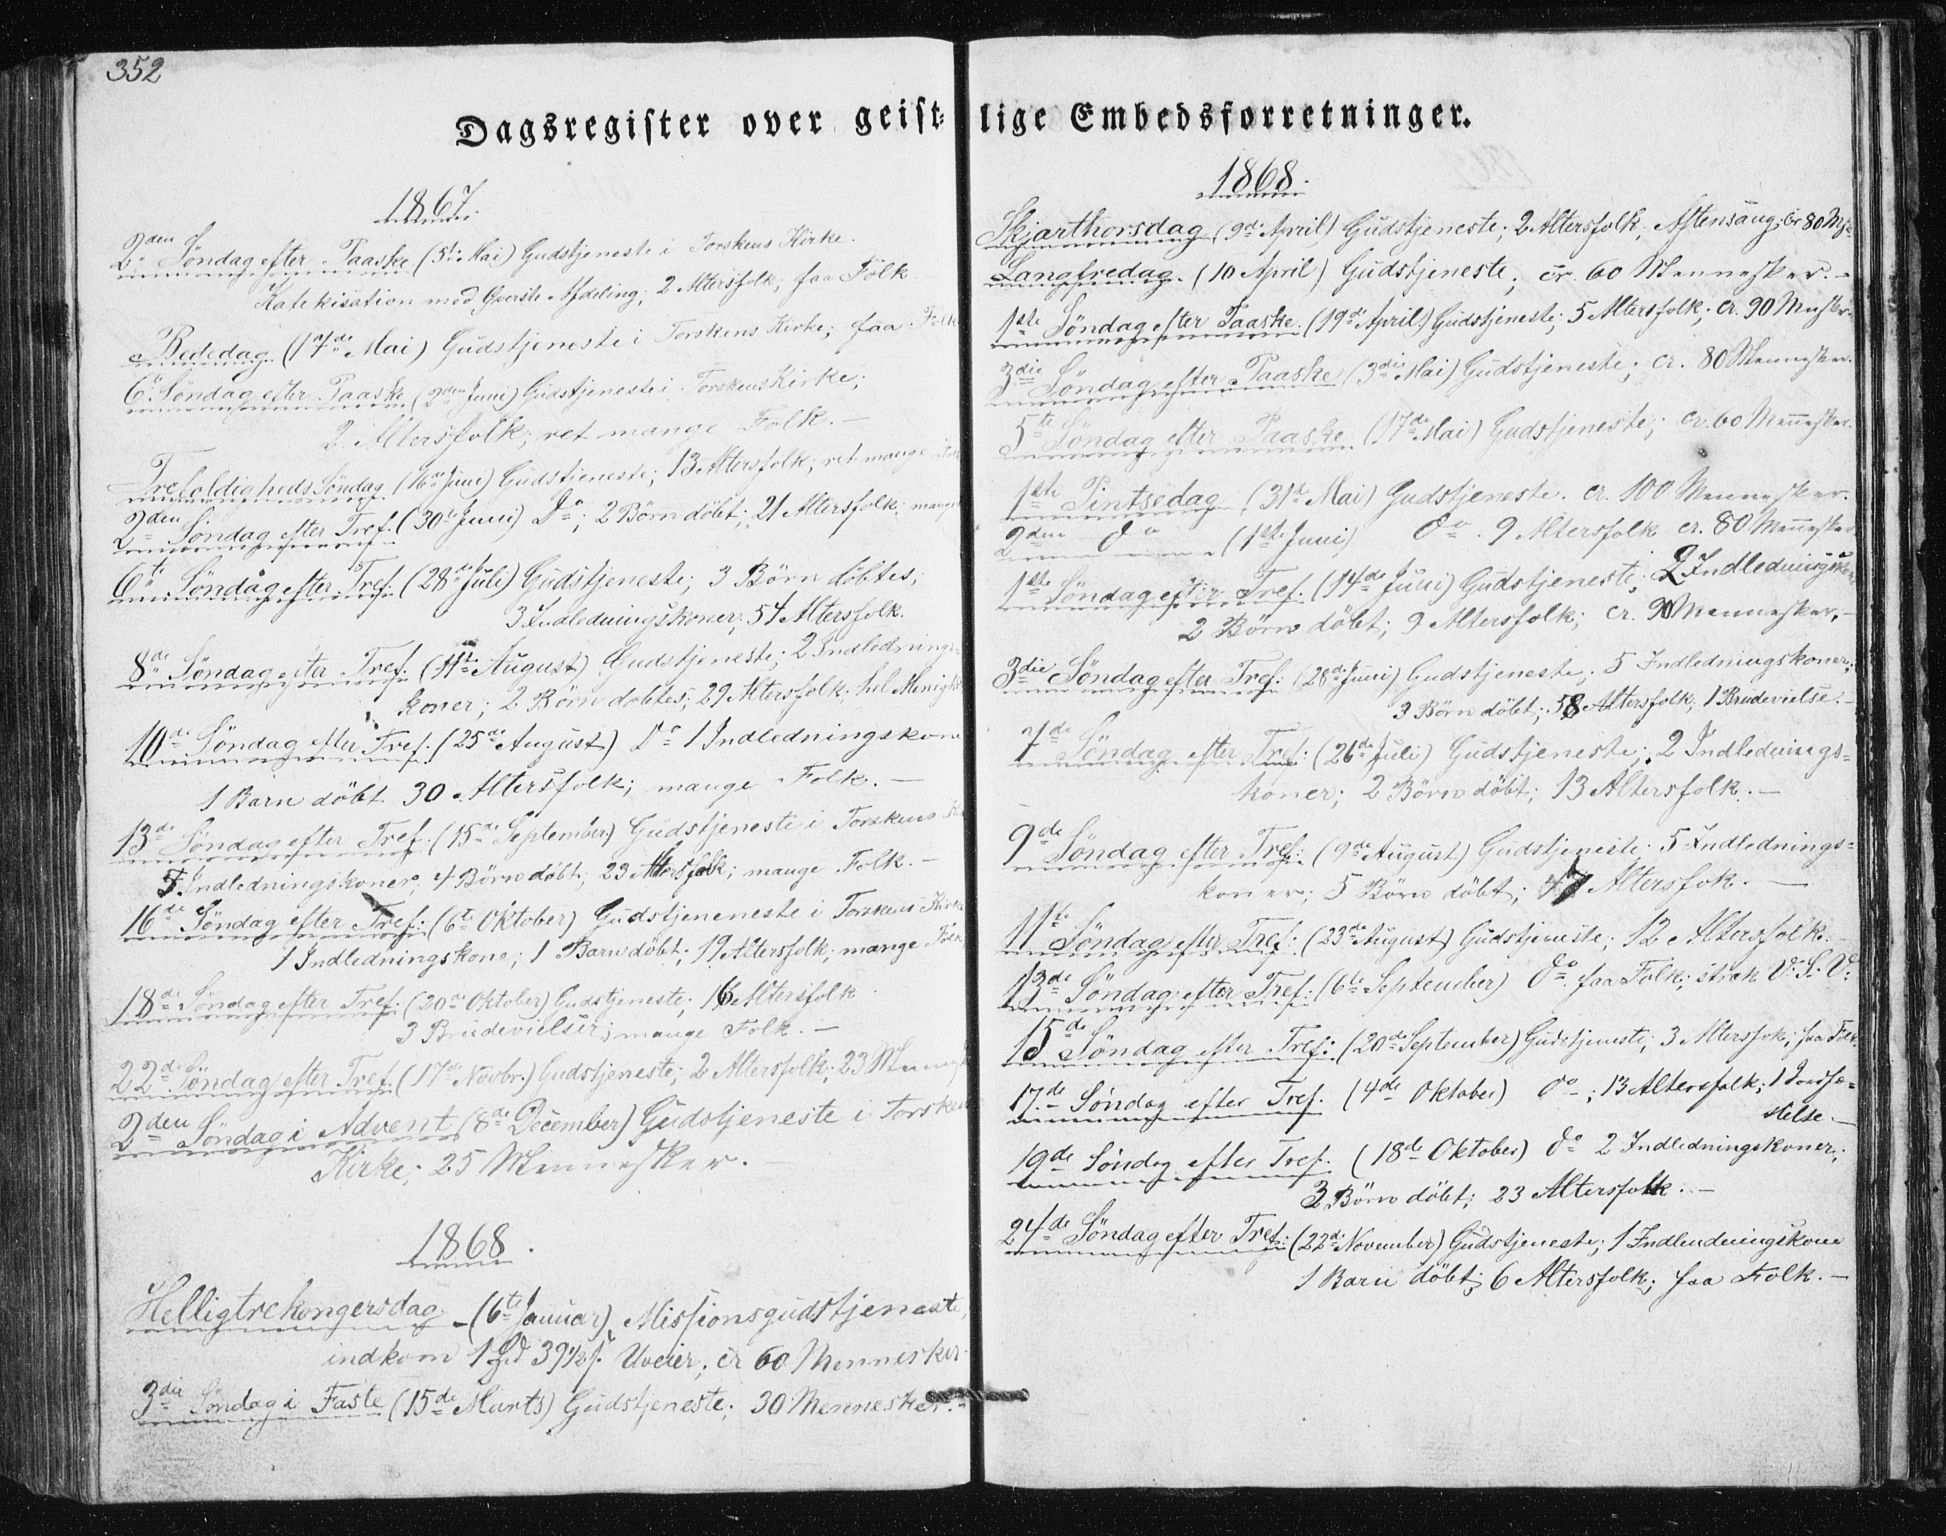 352
Dagsregister over geistlige Embedsforretninger.
1867.
2den Søndag efter Paaske (5te Mai) Gudstjeneste i Torskens Kirke.
Katekisation med øverste Afdeling; 2 Altersfolk; faa Folk
Bededag (17de Mai) Gudstjeneste i Torskens Kirke; faa Folk
6te Søndag efter Paaske (2den Juni) Gudstjeneste i Torskens Kirke;
2 Altersfolk; ret mange Folk. –
Trefoldigheds Søndag (16de Juni) Gudstjeneste; 13 Altersfolk; ret mange
2den Søndag efter Tref. (30te Juni) Do; 2 Børn döbt; 21 Altersfolk; mange
6te Søndag efter Tref. (28de Juli) Gudstjeneste; 3 Börn döbtes;
3 Indledningskoner; 54 Altersfolk.
8de Søndag efter Tref. (11te August) Gudstjeneste; 2 Indlednings-
koner; 2 Börn döbtes; 29 Altersfolk; hel Menighe
10de Söndag efter Tref. (25de August) Do 1 Indledningskone
1 Barn döbt 30 Altersfolk; mange Folk. –
13de Söndag efter Tref. (15de September) Gudstjeneste i Torskens
5 Indledningskoner; 4 Börn döbt; 23 Altersfolk; mange Folk. –
16de Söndag efter Tref: (6te Oktober) Gudstjeneneste i Torskens Kirke
1 Indledningskone; 1 Barn döbt; 19 Altersfolk; mange Folk
18de Söndag efter Tref. (20de Oktober) Gudstjeneste; 16 Altersfolk
3 Brudevielser; mange Folk. –
22de Söndag efter Tref. (17de Novbr.) Gudstjeneste; 2 Altersfolk; 23 Mennesk
2den Söndag i Advent (8de December) Gudstjeneste i Torsken
Kirke; 25 Mennesker.
1868.
Helligtrekongersdag – (6te Januar) Missionsgudstjeneste,
indkom 1 39½ Uveier; cr 60 Mennesker
3die Söndag i Faste (15de Marts) Gudstjeneste; 30 Mennesker. –
1868.
Skjærthorsdag (9de April) Gudstjeneste; 2 Altersfolk; Aftensang; cr 80 Msk
Langfredag. (10 April) Gudstjeneste; cr. 60 Mennesker. –
1ste Söndag efter Paaske. (19de April) Gudstjeneste; 5 Altersfolk; cr. 90 Msker.
3die Söndag efter Paaske (3die Mai) Gudstjeneste; cr. 80 Mennesker.
5te Söndag efter Paaske (17de Mai) Gudstjeneste; cr. 60 Mennesker.
1ste Pintsedag (31te Mai) Gudstjeneste. cr. 100 Mennesker.
2den do (1ste Juni) do. 9 Altersfolk cr. 80 Mennesker
1ste Söndag efter Tref. (14de Juni) Gudstjeneste; 2 Indledningskon
2 Börn döbt; 9 Altersfolk; cr. 90 Mennesker. –
3die Söndag efter Tref: (28de Juni) Gudstjeneste; 5 Indledningskoner;
3 Börn döbt; 58 Altersfolk; 1 Brudevielse. –
7de Söndag efter Tref: (26de Juli) Gudstjeneste; 2 Indlednings-
koner; 2 Börn döbt; 13 Altersfolk. –
9de Söndag efter Tref: (9de August) Gudstjeneste. 5 Indlednings-
koner; 5 Börn döbt; 47 Altersfok. –
11te Söndag efter Tref: (23de August) Gudstjeneste; 12 Altersfolk. –
13de Söndag efter Tref: (6te September) do. faa Folk; strak V. S. V:
15de Söndag efter Tref: (20de September) Gudstjeneste; 3 Altersfok; faa Folk.
17de Söndag efter Tref. (4de Oktober) do; 13 Altersfolk; 1 Jordfæ-
stelse –
19de Söndag efter Tref. (18de Oktober) do 2 Indledningskoner;
3 Börn döbt; 23 Altersfolk. –
24de Söndag efter Tref: (22de November) Gudstjeneste; 1 Indlendningskone
1 Barn döbt; 6 Altersfolk; faa Folk. –